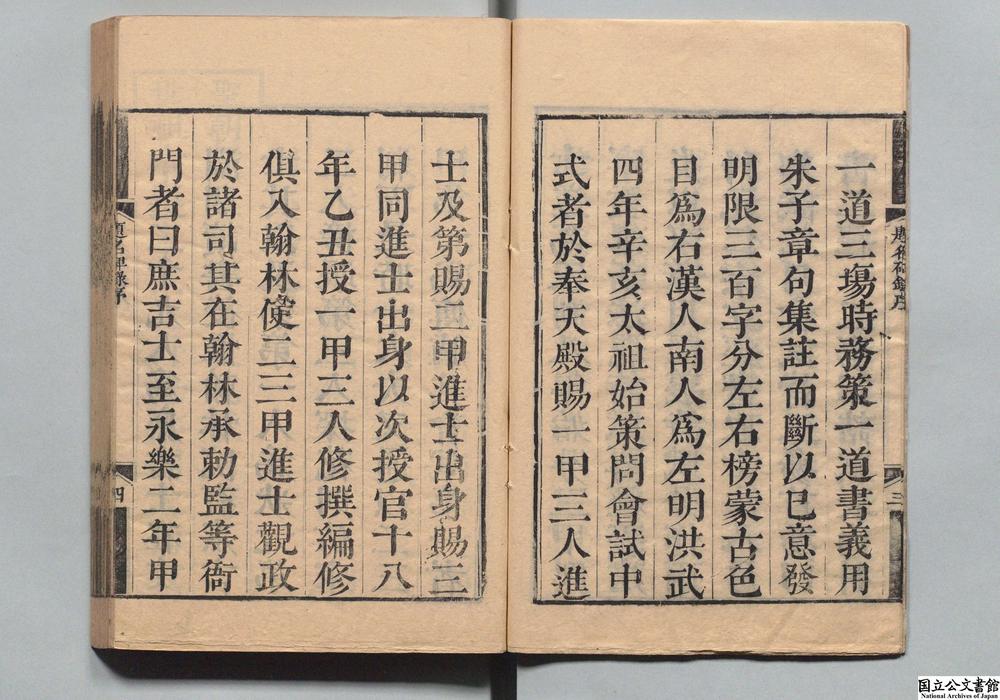 一道三塲時務策一道書義用
朱子章句集註而斷以已意發
明限三百字分左右榜蒙古色
目爲右漢人南人爲左明洪武
四年辛亥太祖始策問會試中
式者於奉天殿賜一甲三人進
題名碑錄序
三
士及第賜二甲進士出身賜三
甲同進士出身以次授官十八
年乙丑授一甲三人修撰編修
俱入翰林使二三甲進士觀政
於諸司其在翰林承勅監等衙
門者曰庶吉士至永樂二年甲
題名碑錄序
四
国立公文書館
National Archives of Japan